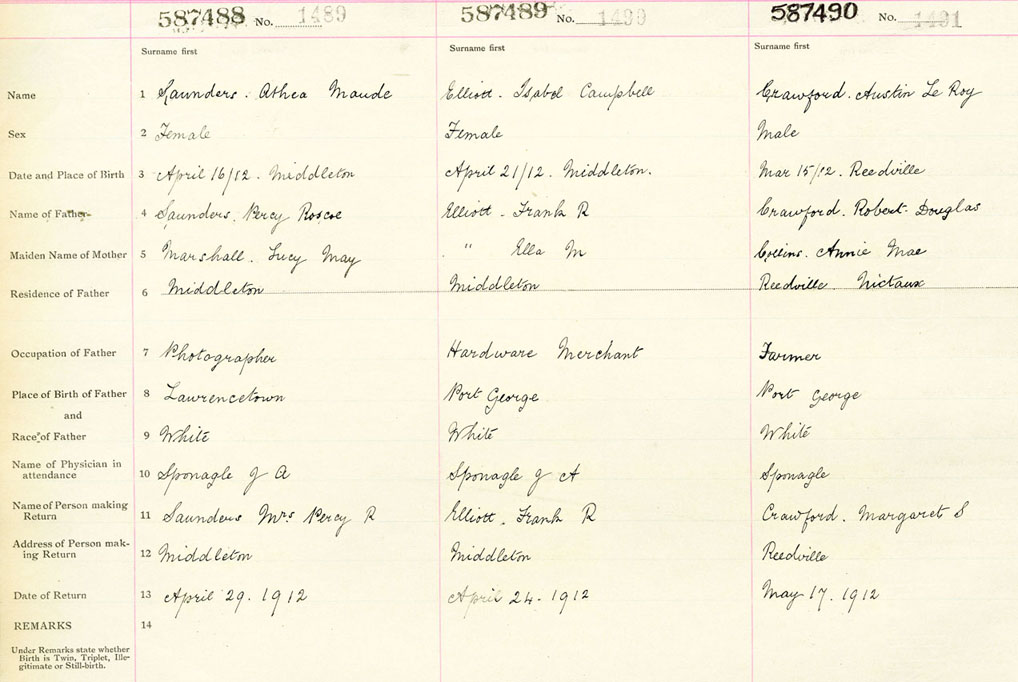 587488 No. 1489 587489 No. 1490 587490 No. 1491
Surname first Surname first Surname first
Name 1 Saunders. Athea Maude Elliott. Isabel Campbell Crawford. Austin Le Roy
Sex 2 Female Female Male
Date and Place of Birth 3 April 16/12. Middleton April 21/12. Middleton. Mar 15/12. Reedville
Name of Father 4 Saunders. Percy Roscoe Elliott. Frank R Crawford. Robert Douglas
Maiden Name of Mother 5 Marshall. Lucy May " Ella M Collins. Annie Mae
Residence of Father 6 Middleton Middleton Reedville. Nictaux
Occupation of Father 7 Photographer Hardware Merchant Farmer
Place of Birth of Father 8 Lawrencetown Port George Port George
and
Race of Father 9 White White White
Name of Physician in
attendance 10 Sponagle J A Sponagle J A Sponagle
Name of Person making
Return 11 Saunders Mrs Percy R Elliott. Frank R Crawford. Margaret S
Address of Person mak-
ing Return 12 Middleton Middleton Reedville
Date of Return 13 April 29. 1912 April 24. 1912 May 17. 1912
REMARKS 14
Under Remarks state whether
Birth is Twin, Triplet, Ille-
gitimate or Still-birth.